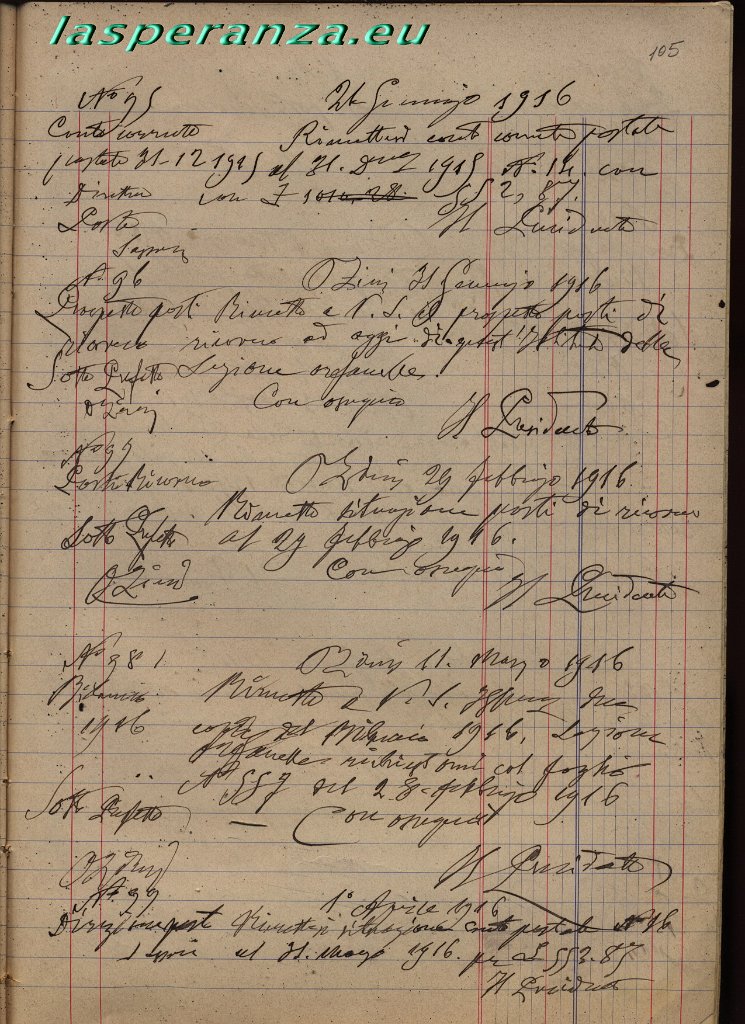 lasperanza.eu
105
N° 95 24 Gennajo 1916
Conto corrente Rimettesi conto corrente postale
postale 31-12 1915 al 31. 1915 N. 14. con
Direttore con £ 1010.28. 552,87.
Poste Il Presidente
Sassari
N. 96 Ozieri 31 Gennajo 1916
Prospetto posti Rimetto a V. S. il prospetto posti di
ricovero ricovero ad oggi di quest' Istituto della
Sotto Prefetto Sezione orfanelle.
di Ozieri Con ossequio
Il Presidente
N° 97
Posti Ricovero Ozieri 29 febbrajo 1916
Rimetto situazione posti di ricovero
Sotto Prefetto al 29 febbrajo 1916.
Ozieri Con ossequio
Il Presidente
N° 98 Ozieri 11. Marzo 1916
Bilancio Rimetto a V. S.
1916 copia del Bilancio 1916, Sezione
orfanelle richiestomi col foglio
N° 557 del 28 febbrajo 1916
Sotto Prefetto — Con ossequio
Ozieri Il Presidente
N. 99 1° Aprile 1916
Direzione poste Rimettesi situazione conto postale N° 16
al 31. Marzo 1916. per £ 553.87
Il Presidente